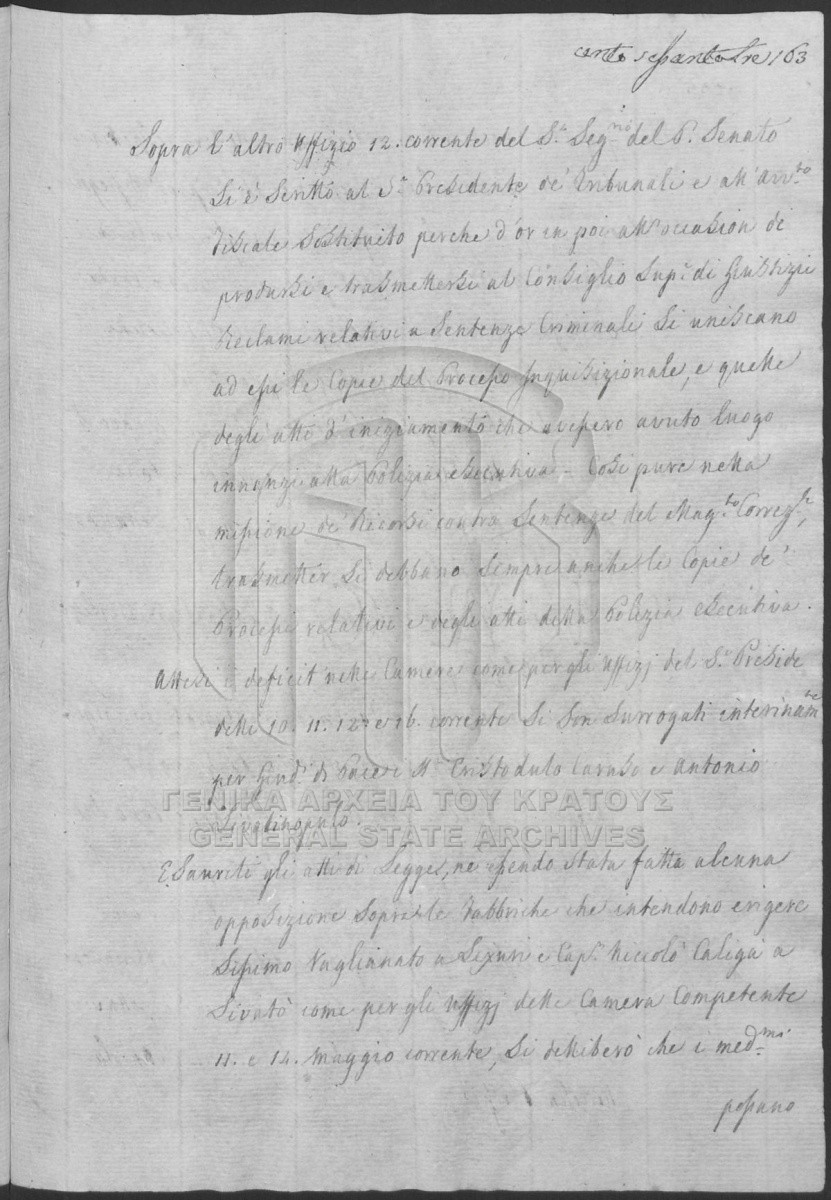 cento sessantatre 163
Sopra l'altro Uffizio 12. corrente del S.r Seg.rio del P. Senato
Si è Scritto al S.r Presidente de' Tribunali e all' Avv.to
Fiscale Sostituito perche d'or in poi all'occasion di
prodursi e trasmettersi al Consiglio Sup.e di Giustizia
Reclami relativi a Sentenze Criminali Si uniscano
ad essi le Copie del Processo Inquisizionale, e quelle
degli atti d'iniziamento che avessero avuto luogo
innanzi alla Polizia esecutiva - Così pure nella
missione de' Ricorsi contra Sentenze del Mag.to Correz.le,
trasmetter Si debbano Sempre anche le Copie de'
Processi relativi e degli atti della Polizia esecutiva.
Attesi i deficit nelle Camere come per gli Uffizj del S.r Preside
delli 10. 11. 12. e 16. corrente Si Son Surrogati interinam.te
per Giud.i di Pace i Cristodulo Caruso e Antonio
ΓΕΝΙΚΑ ΑΡΧΕΙΑ ΤΟΥ ΚΡΑΤΟΥΣ
GENERAL STATE ARCHIVES
Esauriti gli atti di Legge, ne essendo stata fatta alcuna
opposizione Sopra le Fabbriche che intendono erigere
Sissimo Vaglianato a Lixuri e Cap.n Niccolò Caligà a
Livatò come per gli Uffizj delle Camera Competente
11. e 14. Maggio corrente, Si delliberò che i med.mi
possano